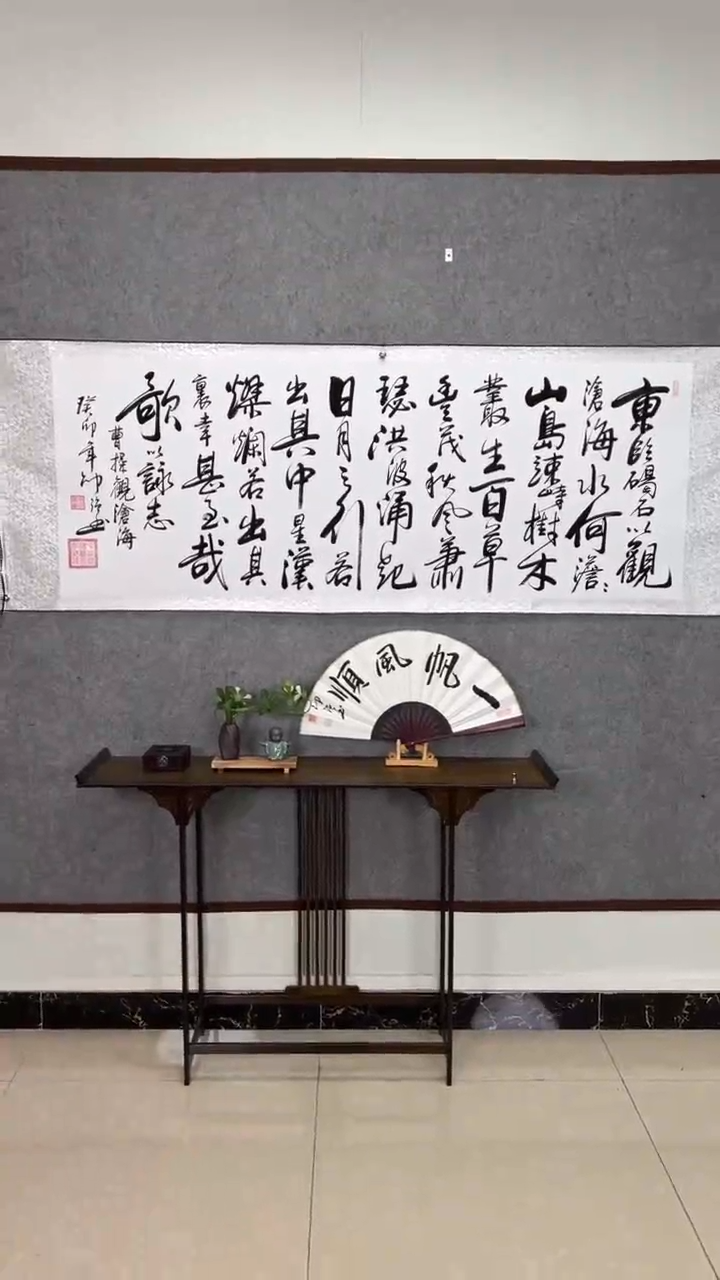 東臨碣石以觀
滄海水何澹:
山島竦峙樹木
叢生百草
豐茂秋風蕭
瑟洪波涌起
日月之行若
出其中星漢
燦爛若出其
裏幸甚至哉
歌以詠志
曹操觀滄海
癸卯年
一帆風順